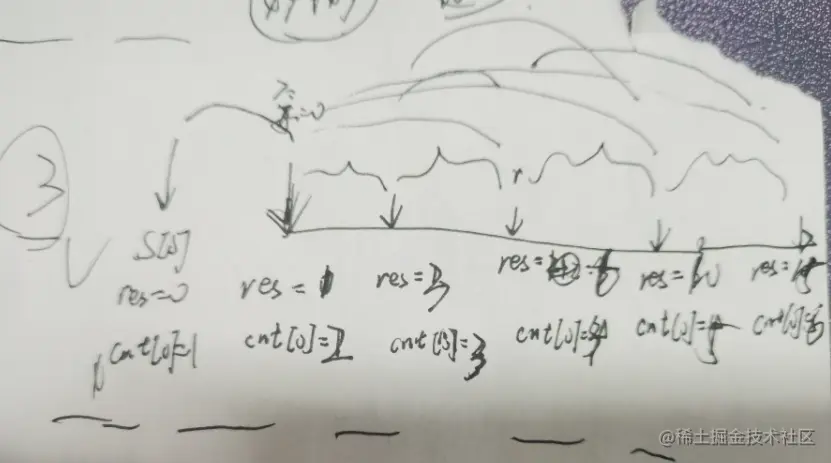 ③
=0
r
S[0]
res=0
cnt[0]=1
res=1
cnt[0]=2
res=3
cnt[0]=3
res=6
cnt[0]=4
res=10
cnt[0]=5
res=15
cnt[0]=6
@稀土掘金技术社区